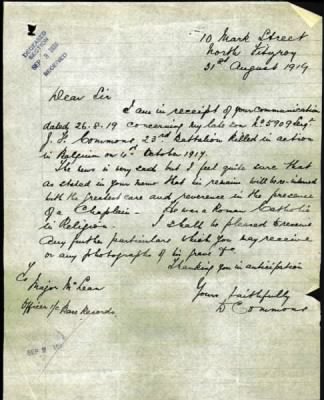 DECEASED
SECTION
SEP 2 1919
RECEIVED
10 Mark Street
North Fitzroy
31st August 1919
Dear Sir
I am in receipt of your communication
dated 26-8-19 concerning my late son No 5909
J. F. Commons, 23rd Battalion killed in action
in Belgium on 4th October 1917.
The news is very sad but I feel quite sure that
as stated in your memo that his remains will be re-interred
with the greatest care and reverence in the presence
of a Chaplain - He was a Roman Catholic
in Religion. I shall be pleased to receive
any further particulars which you may receive
or any photographs of his grave &c
Thanking you in anticipation
Yours faithfully
D Commons
To
Major McLean
Officer i/c Base Records
SEP 2